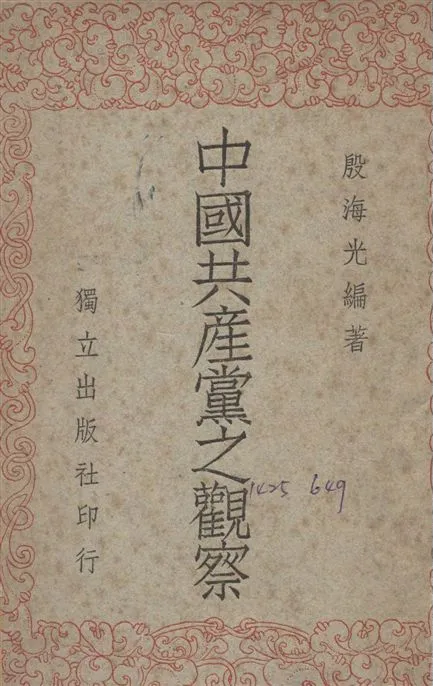 殷海光編著
中國共產黨之觀察
1425 649
獨立出版社印行